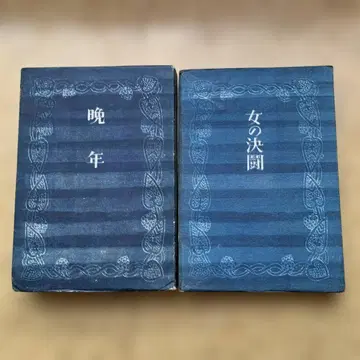 晩年
女の決闘